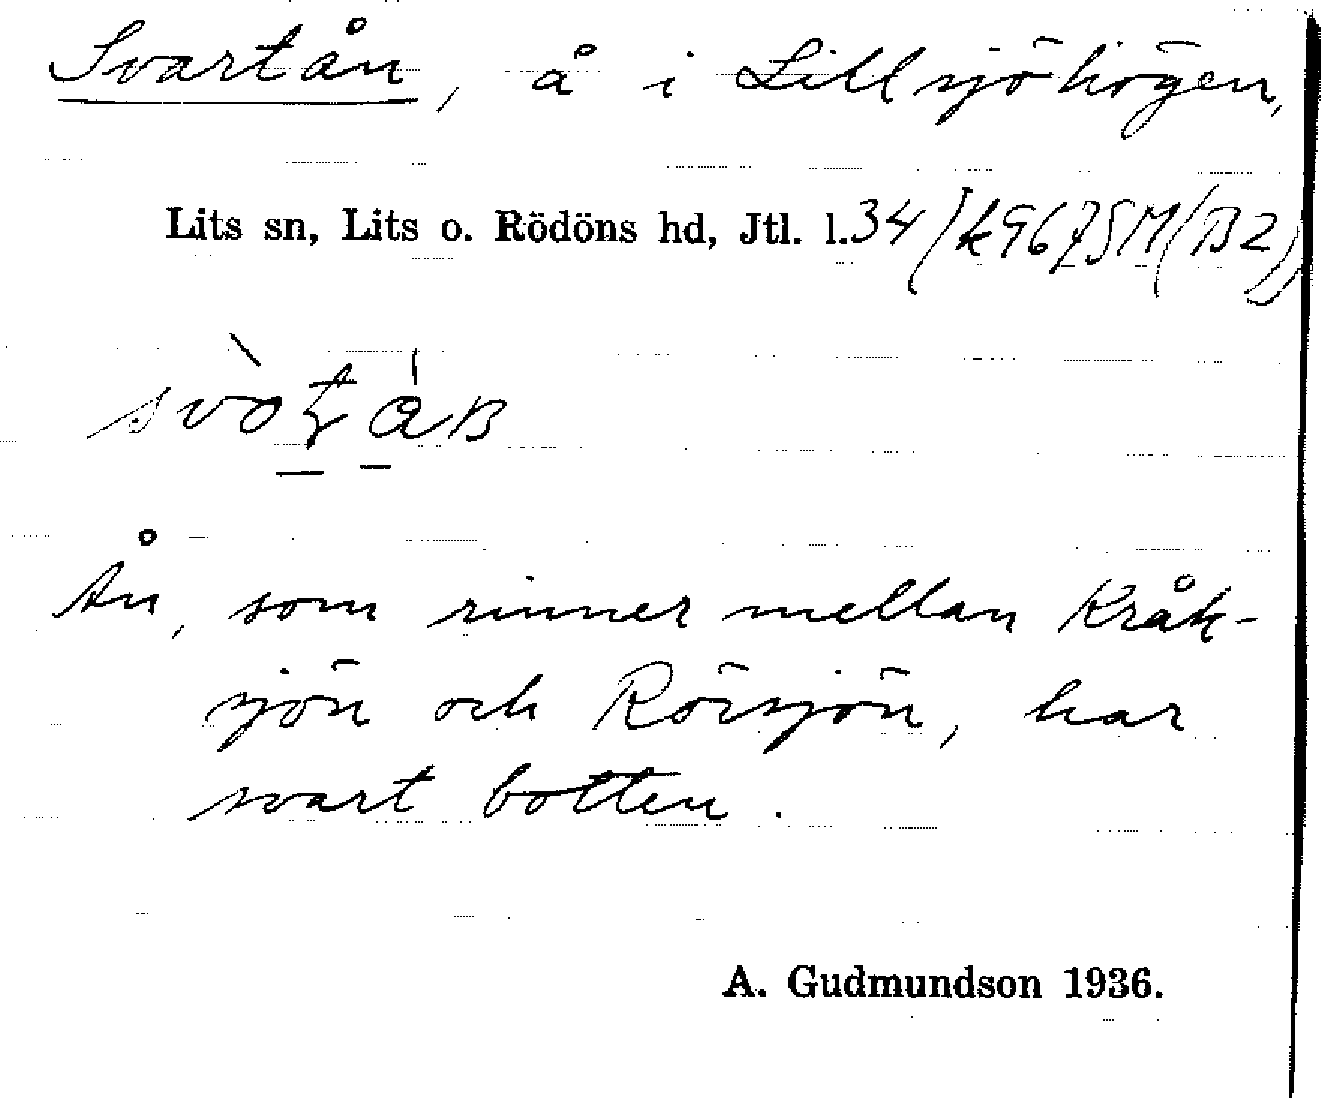 Svartån, å i Lillsjöhögen,
Lits sn, Lits o. Rödöns hd, Jtl. l. 34/k 967 SM(B2)
Ån, som rinner mellan Kråk-
sjön och Rörsjön, har
svart botten.
A. Gudmundson 1936.